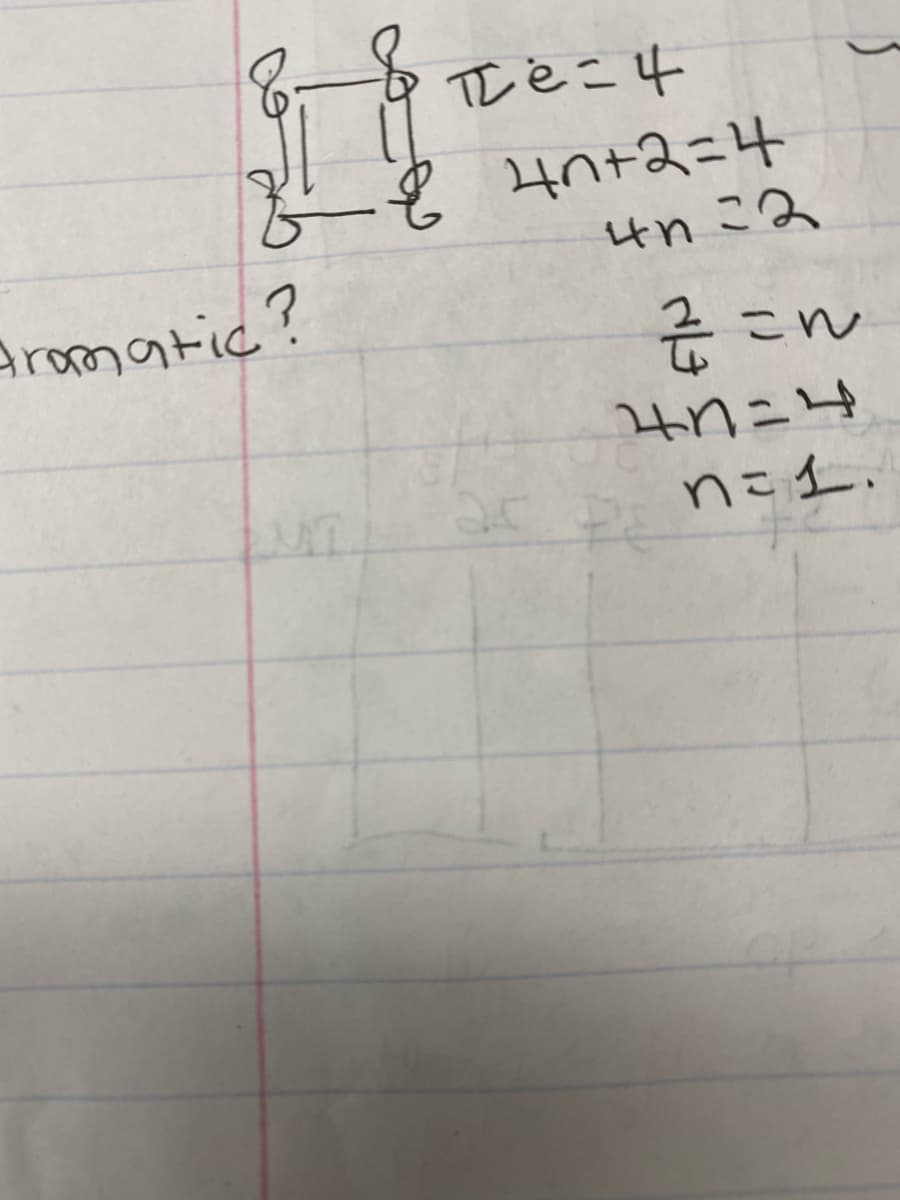 πe = 4
4n+2=4
4n = 2
Aromatic?
2/4 = n
4n = 4
n = 1.